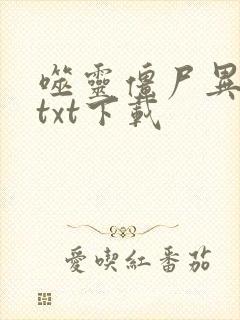 噬靈僵尸異
txt下載
愛喫紅番茄